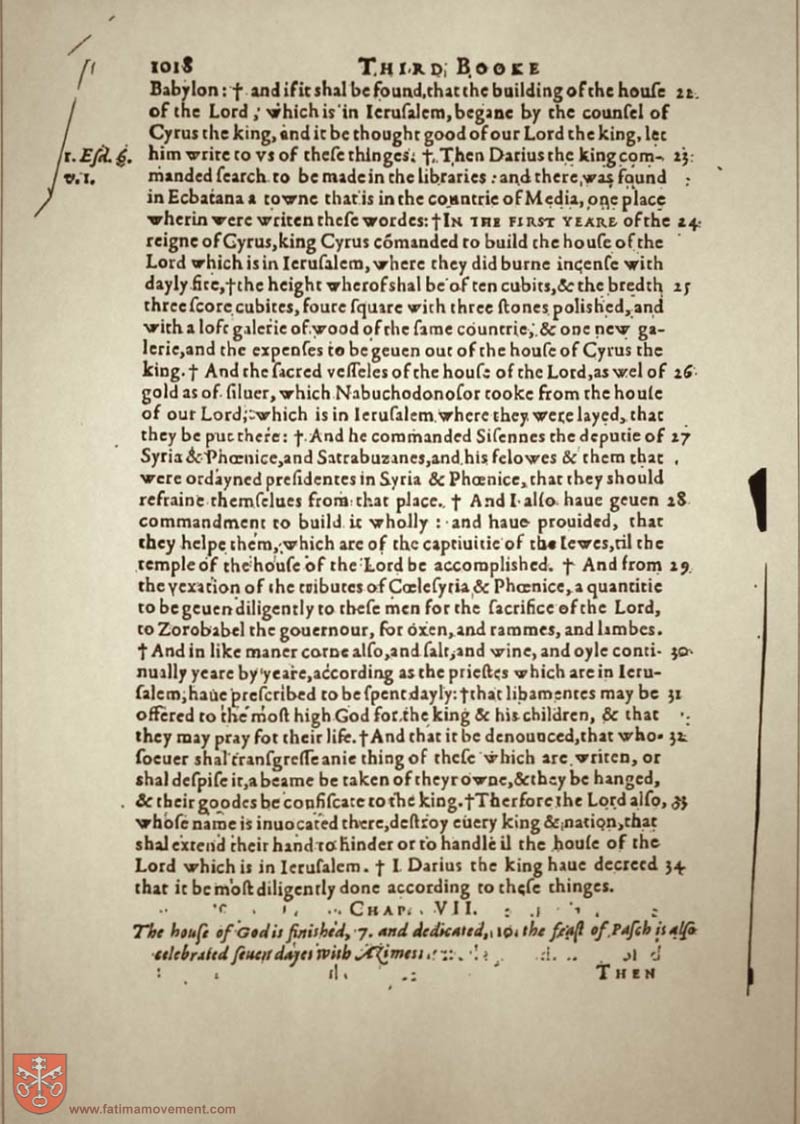 1018 THIRD BOOKE
Babylon: † and if it shal be found, that the building of the houſe 22.
of the Lord, which is in Ieruſalem, begane by the counſel of
Cyrus the king, and it be thought good of our Lord the king, let
1. Eſd. 6. him write to vs of theſe thinges. † Then Darius the king com- 23
v. 1. manded ſearch to be made in the libraries: and there was found
in Ecbatana a towne that is in the countrie of Media, one place
wherin were writen theſe wordes: † IN THE FIRST YEARE of the 24
reigne of Cyrus, king Cyrus cōmanded to build the houſe of the
Lord which is in Ieruſalem, where they did burne incenſe with
dayly fire, † the height wherof ſhal be of ten cubits, & the bredth 25
three ſcore cubites, foure ſquare with three ſtones poliſhed, and
with a loft galerie of wood of the ſame countrie, & one new ga-
lerie, and the expenſes to be geuen out of the houſe of Cyrus the
king. † And the ſacred veſſeles of the houſe of the Lord, as wel of 26
gold as of ſiluer, which Nabuchodonoſor tooke from the houſe
of our Lord, which is in Ieruſalem where they were layed, that
they be put there: † And he commanded Siſennes the deputie of 27
Syria & Phœnice, and Satrabuzanes, and his felowes & them that
were ordayned preſidentes in Syria & Phœnice, that they ſhould
refraine themſelues from that place. † And I alſo haue geuen 28
commandment to build it wholly: and haue prouided, that
they helpe them, which are of the captiuitie of the Iewes, til the
temple of the houſe of the Lord be accompliſhed. † And from 29
the vexation of the tributes of Cœleſyria & Phœnice, a quantitie
to be geuen diligently to theſe men for the ſacrifice of the Lord,
to Zorobabel the gouernour, for oxen, and rammes, and lambes.
† And in like maner corne alſo, and ſalt, and wine, and oyle conti- 30
nually yeare by yeare, according as the prieſtes which are in Ieru-
ſalem, haue preſcribed to be ſpent dayly: † that libamentes may be 31
offered to the moſt high God for the king & his children, & that
they may pray for their life. † And that it be denounced, that who- 32
ſoeuer shal tranſgreſſe anie thing of theſe which are writen, or
shal deſpiſe it, a beame be taken of theyr owne, & they be hanged,
& their goodes be confiſcate to the king. † Therfore the Lord alſo, 33
whoſe name is inuocated there, deſtroy euery king & nation, that
shal extend their hand to hinder or to handle il the houſe of the
Lord which is in Ieruſalem. † I Darius the king haue decreed 34
that it be moſt diligently done according to theſe thinges.
CHAP. VII.
The houſe of God is finiſhed, 7. and dedicated, 10. the feaſt of Paſch is alſo
celebrated ſeuen dayes with Azimes.
THEN
www.fatimamovement.com